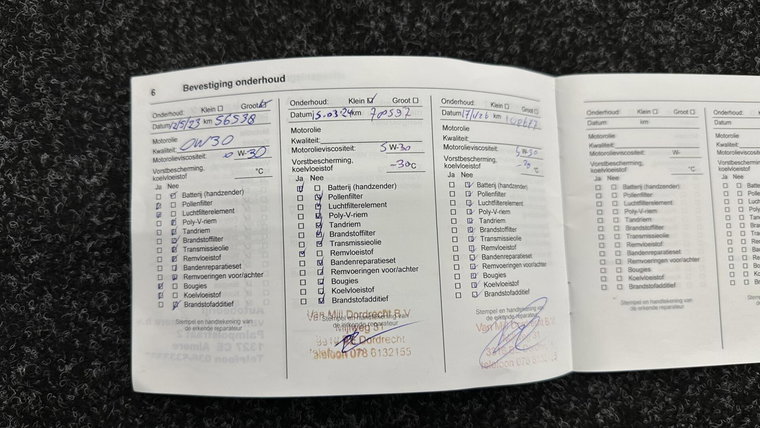 6
Bevestiging onderhoud
Onderhoud: Klein Groot
Datum 12/5/23 km 56538
Motorolie
Kwaliteit: 0W30
Motorolieviscositeit: 0 W-30
Vorstbescherming,
koelvloeistof °C
Ja Nee
Batterij (handzender)
Pollenfilter
Luchtfilterelement
Poly-V-riem
Tandriem
Brandstoffilter
Transmissieolie
Remvloeistof
Bandenreparatieset
Remvoeringen voor/achter
Bougies
Koelvloeistof
Brandstofadditief
Stempel en handtekening van
de erkende reparateur
Onderhoud: Klein Groot
Datum 15-03-24 km 70592
Motorolie
Kwaliteit:
Motorolieviscositeit: 5 W-30
Vorstbescherming,
koelvloeistof -30°C
Ja Nee
Batterij (handzender)
Pollenfilter
Luchtfilterelement
Poly-V-riem
Tandriem
Brandstoffilter
Transmissieolie
Remvloeistof
Bandenreparatieset
Remvoeringen voor/achter
Bougies
Koelvloeistof
Brandstofadditief
Stempel en handtekening van
de erkende reparateur
Van Mill Dordrecht B.V
Mijlweg 81
Dordrecht
Telefoon 078 6132155
Onderhoud: Klein Groot
Datum km
Motorolie
Kwaliteit:
Motorolieviscositeit: 5 W-30
Vorstbescherming,
koelvloeistof °C
Ja Nee
Batterij (handzender)
Pollenfilter
Luchtfilterelement
Poly-V-riem
Tandriem
Brandstoffilter
Transmissieolie
Remvloeistof
Bandenreparatieset
Remvoeringen voor/achter
Bougies
Koelvloeistof
Brandstofadditief
Stempel en handtekening van
de erkende reparateur
Van Mill
Telefoon 078
Onderhoud: Klein Groot
Datum km
Motorolie
Kwaliteit:
Motorolieviscositeit: W-
Vorstbescherming,
koelvloeistof °C
Ja Nee
Batterij (handzender)
Pollenfilter
Luchtfilterelement
Poly-V-riem
Tandriem
Brandstoffilter
Transmissieolie
Remvloeistof
Bandenreparatieset
Remvoeringen voor/achter
Bougies
Koelvloeistof
Brandstofadditief
Stempel en handtekening van
de erkende reparateur
Onderhoud:
Datum
Motorolie
Kwaliteit:
Ja Nee